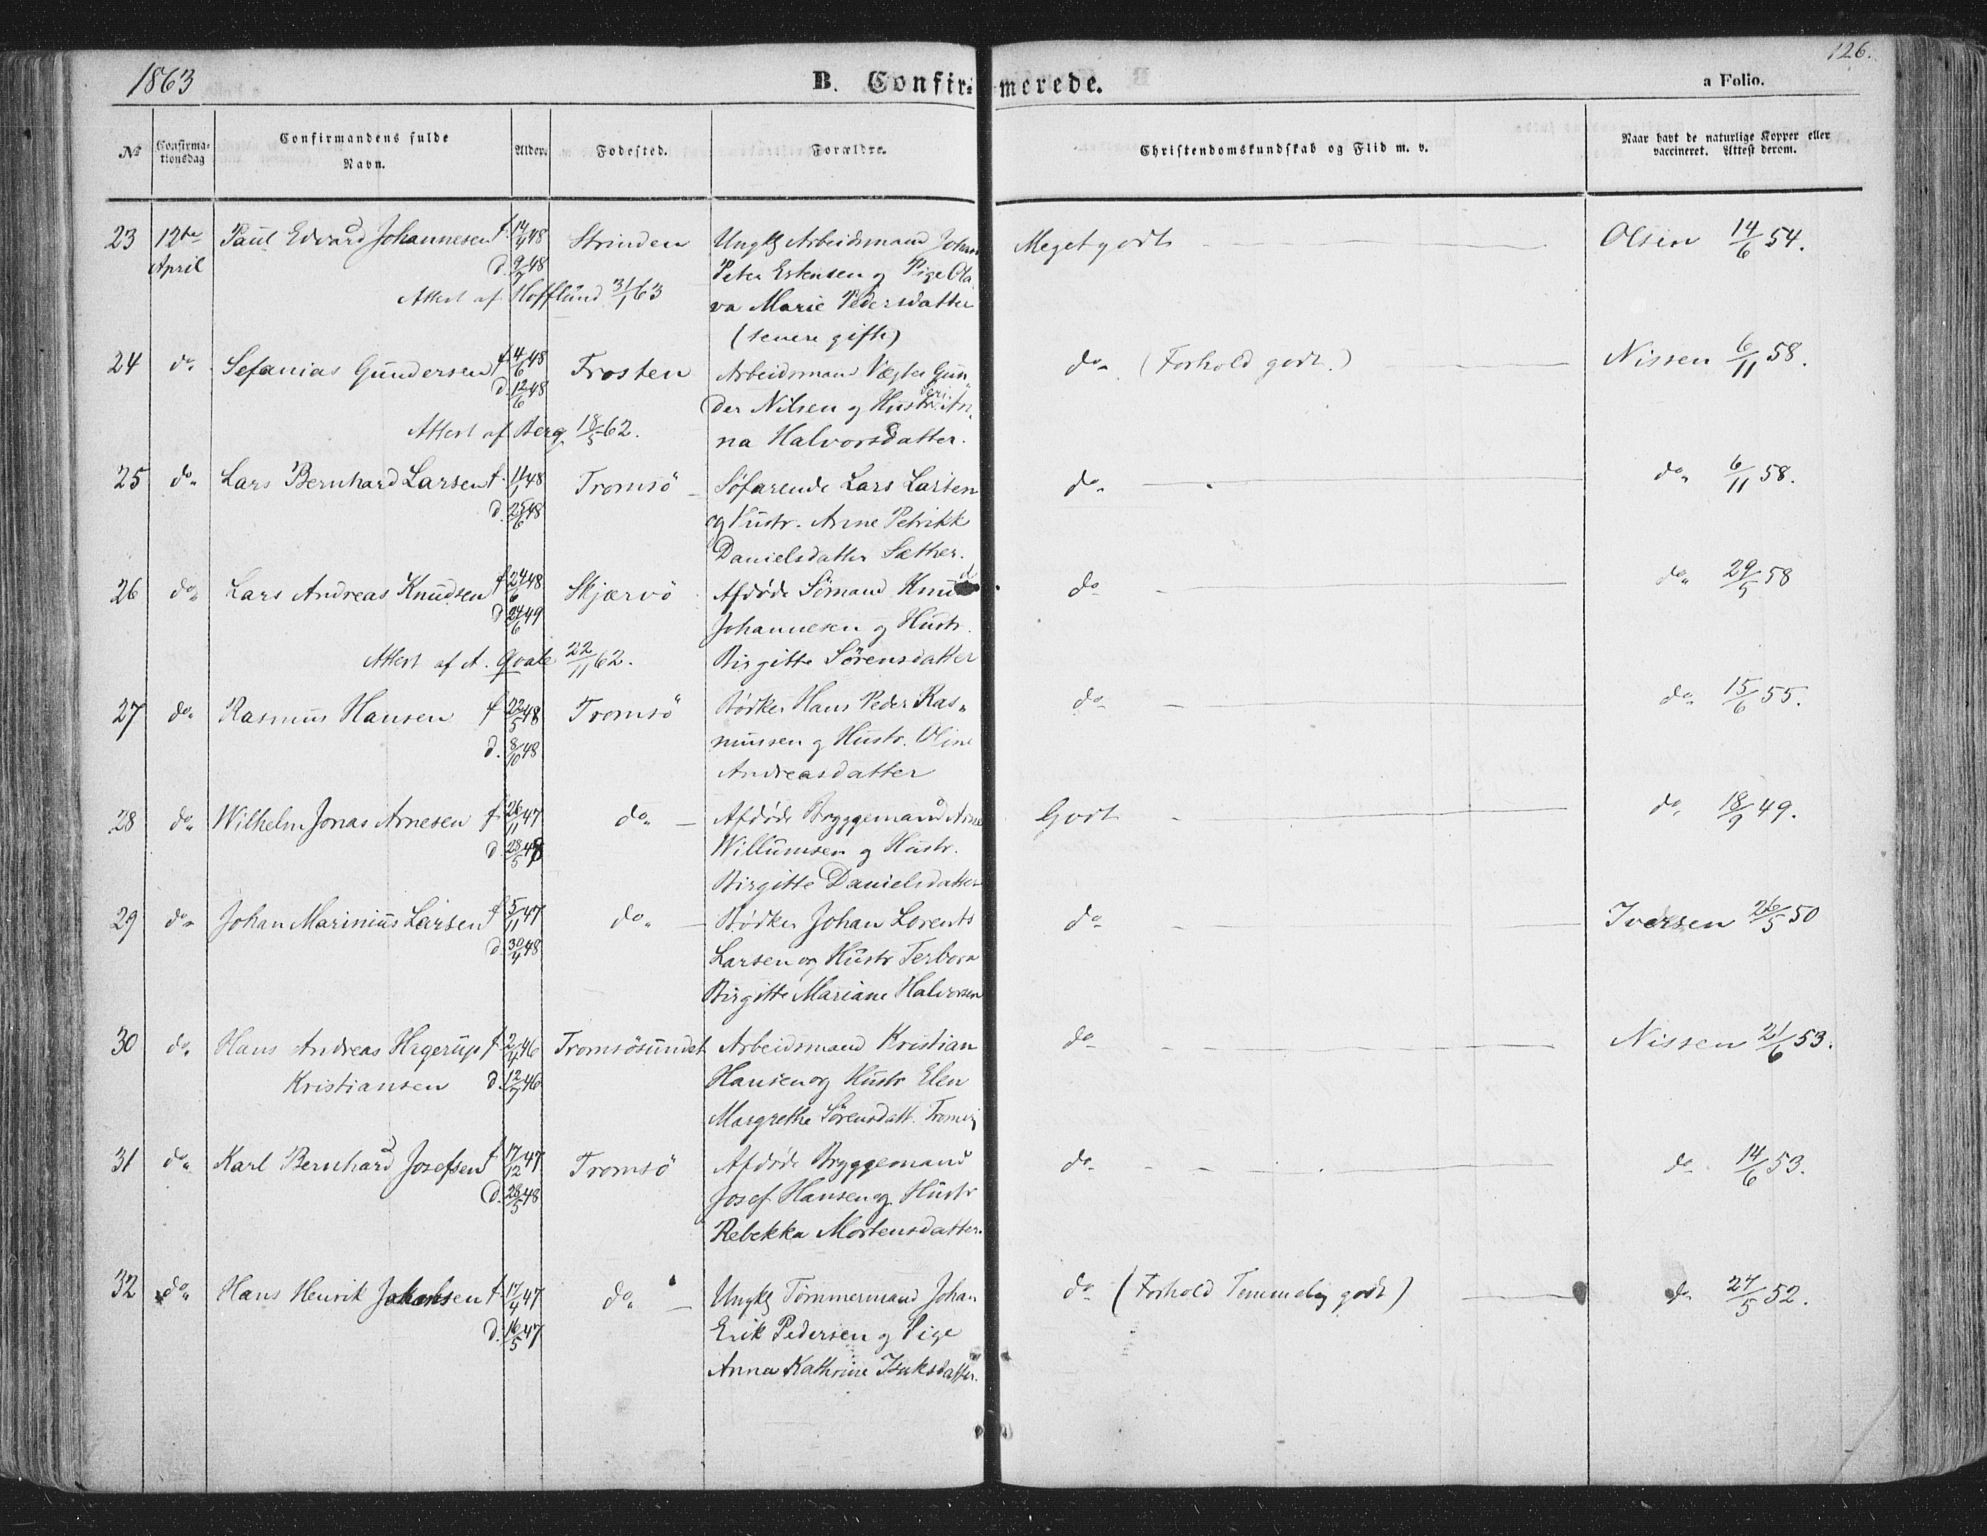 1863
B. Confirmerede.
126.
a Folio.
No
Confirmationsdag
Confirmandens fulde Navn.
Alder.
Fødested.
Forældre.
Christendomskundskab og Flid m. v.
Naar havt de naturlige Kopper eller vaccineret. Attest derom.
23 12te April Paul Edvard Johannesen f. 17/4 48 Strinden Ungk Arbeidsmand Johan Meget godt Olsen 14/6 54.
d. 9/7 48 Peter Estensen og Pige Ola-
Attest af Hofflund 31/1 63 va Marie Pedersdatter
(senere gifte)
24 do Sefanias Gundersen f 4/6 48 Frosten Arbeidsmand Vægter Gun- do (Forhold godt.) Nissen 6/11 58.
d. 12/6 48 der Nilsen og Hustr. An-
Attest af Berg 18/5 62. na Halvorsdatter.
25 do Lars Bernhard Larsen f. 11/1 48 Tromsö Söfarende Lars Larsen do do 6/11 58.
d. 25/6 48 og Hustr. Anne Petrikke
Danielsdatter Sæther.
26 do Lars Andreas Knudsen f 24/6 48 Skjærvö Afdøde Sömand Knud do do 29/5 58
d 24/6 49 Johannesen og Hustr.
Attest af A. Qvale 22/11 62. Birgitte Sörensdatter
27 do Rasmus Hansen f 22/5 48 Tromsö Bödker Hans Peder Ras- do do 15/6 55.
d. 8/10 48 mussen og Hustr. Oline
Andreasdatter
28 do Wilhelm Jonas Arnesen f 26/11 47 do Afdøde Bryggemand Arne Godt do 18/9 49.
d. 28/5 48 Willumsen og Hustr.
Birgitte Danielsdatter
29 do Johan Marinius Larsen f 5/11 47 do Bödker Johan Lorents do Iversen 26/5 50
d. 30/4 48 Larsen og Hustr Terbora
Birgitte Mariane Halvorsen
30 do Hans Andreas Hagerup f 2/4 46 Tromsösundet Arbeidsmand Kristian do Nissen 21/6 53.
Kristiansen d. 12/7 46 Hansen og Hustr Elen
Margrethe Sörensdatt. Tromvig
31 do Karl Bernhard Josefsen f 17/12 47 Tromsö Afdøde Bryggemand do do 14/6 53.
d. 28/5 48 Josef Hansen og Hustr
Rebekka Mortensdatter.
32 do Hans Henrik Johansen f. 17/4 47 do Ungk Tömmermand Johan do (Forhold Temmelig godt) do 27/5 52.
d. 16/5 47 Erik Pedersen og Pige
Anna Kathrine Isaksdatter.